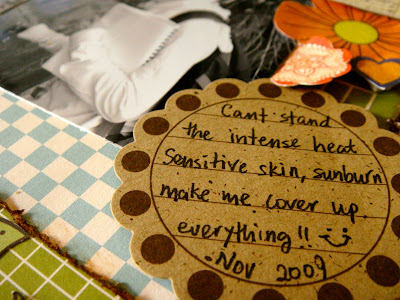 Cant stand
the intense heat
Sensitive skin, sunburn
make me cover up
everything!!
Nov 2009